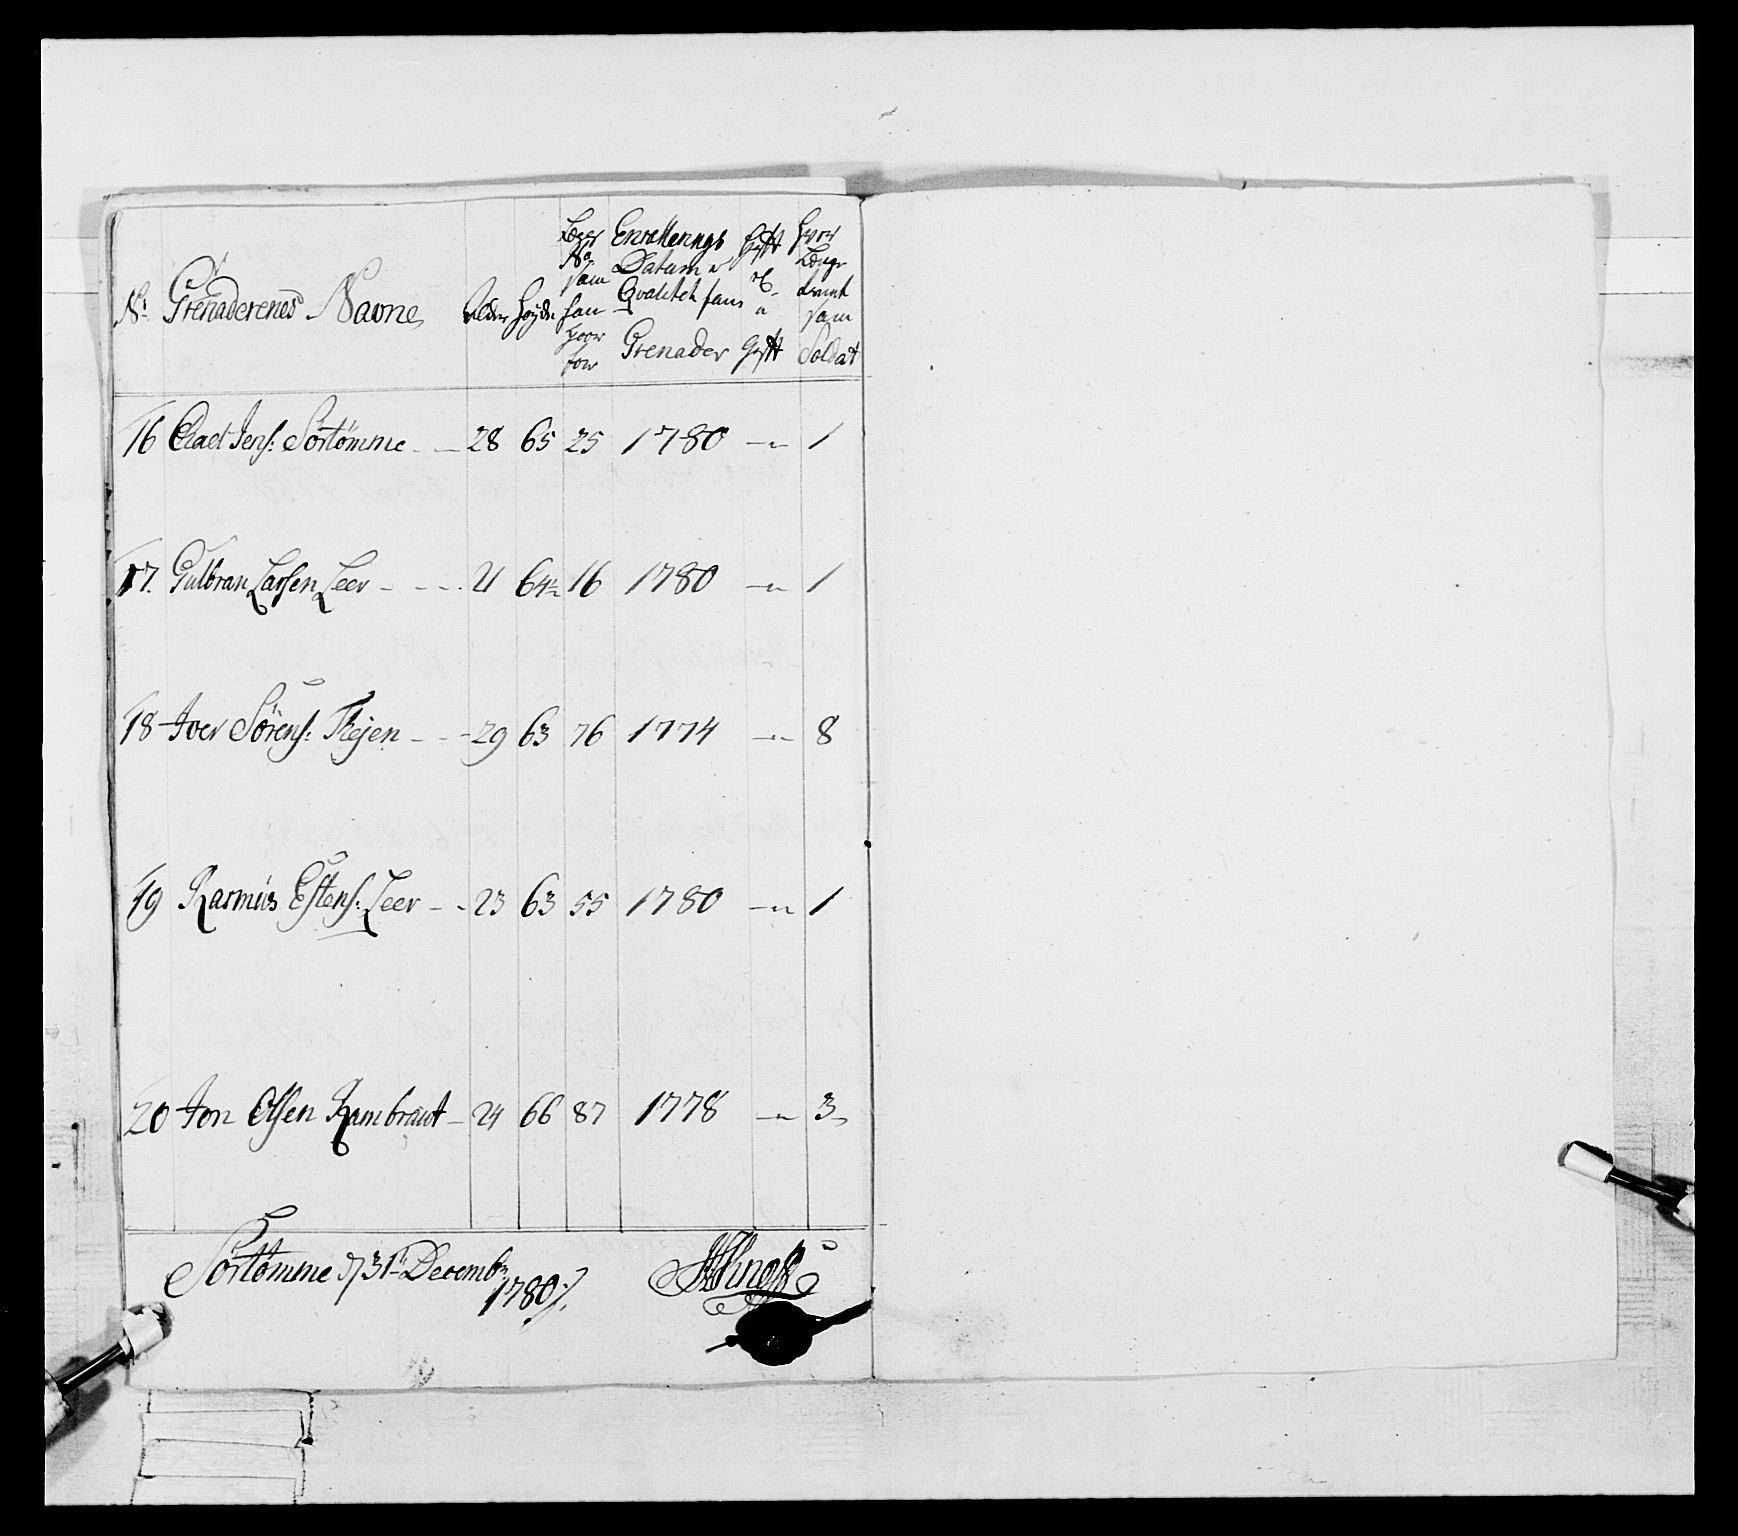 No. Grenaderenes Navne Alder Høyde Læger No. som han staar for Enrollerings Datum Qvalitet som Grenader Gift U Gift Hvor Længe tient som Soldat
16 Jens: Sörtömme - - 28 65 25 1780 -"- 1
17. Gulbran Larsen Leer - - - 21 64½ 16 1780 -"- 1
18 Iver Sörens: - - 29 63 76 1774 -"- 8
19 Rasmus Estens: Leer - - 23 63 55 1780 -"- 1
20 Jon Olsen Rambraut - 24 66 87 1778 -"- 3
Sörtömme d 31t Decembr
1780